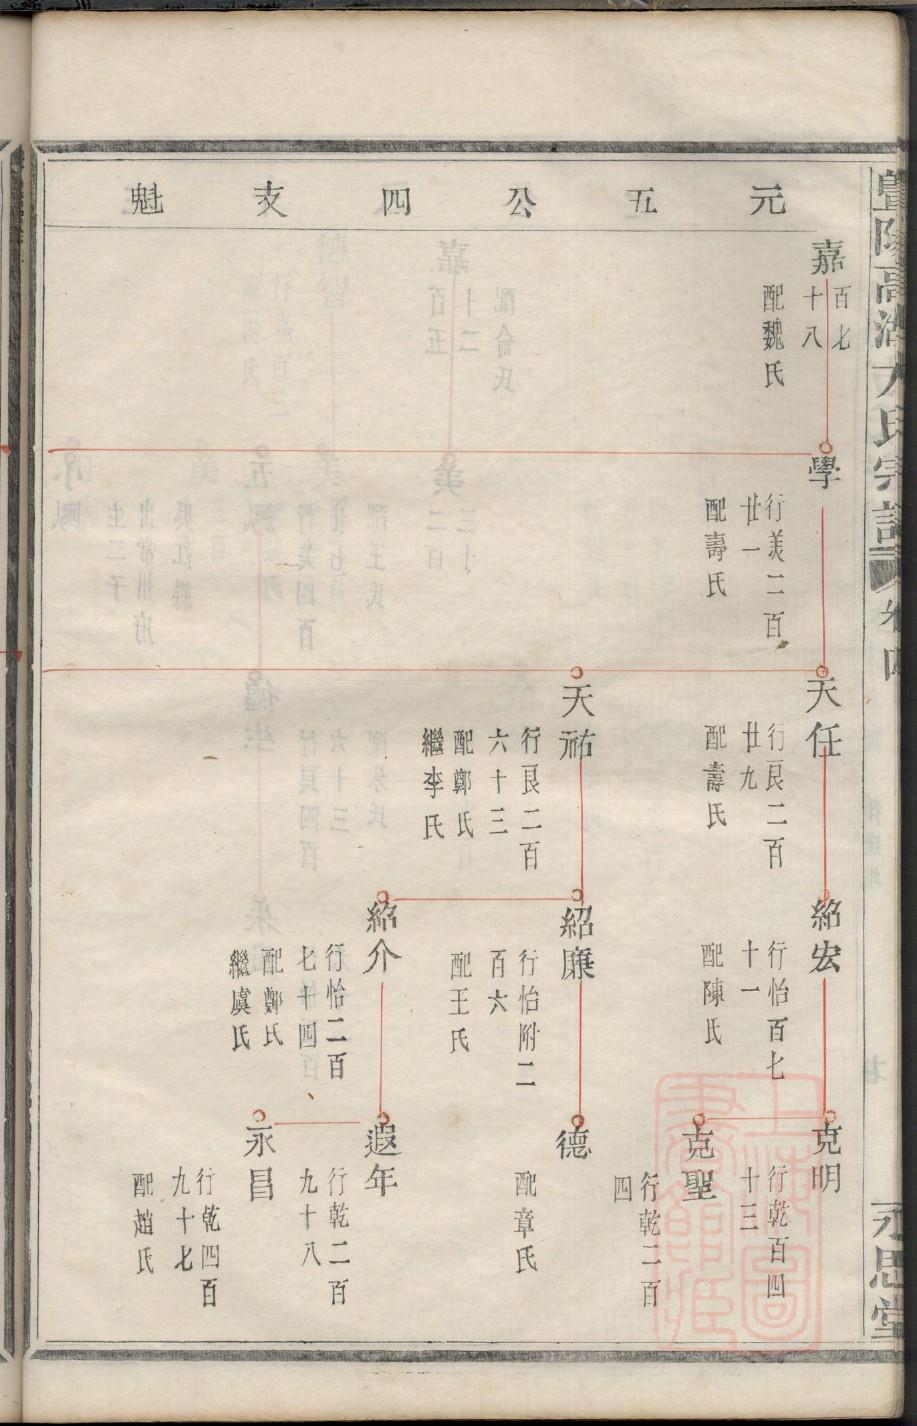 元五公四支魁
嘉
百七
十八
配魏氏
學
行美二百
廿一
配壽氏
天任
行艮二百
廿九
配壽氏
紹宏
行怡百七
十一
配陳氏
克明
行乾百四
十三
克聖
行乾二百
四
天祐
行艮二百
六十三
配鄭氏
繼李氏
紹廉
行怡附二
百六
配王氏
德
配章氏
紹介
行怡二百
七十四
配鄭氏
繼虞氏
遐年
行乾二百
九十八
永昌
行乾四百
九十七
配趙氏
暨陽高湖大氏宗譜
卷四
永思堂